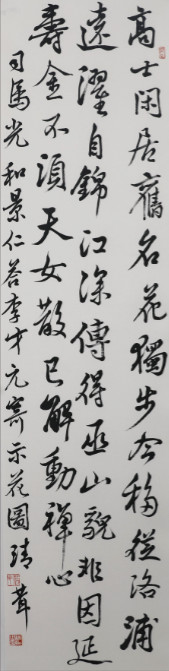 高士閑居舊名花獨步今移從洛浦
遠濯自錦江深傳得巫山貌非因延
壽金不須天女散已解動禪心
司馬光和景仁答李才元寄示花圖 靖葺